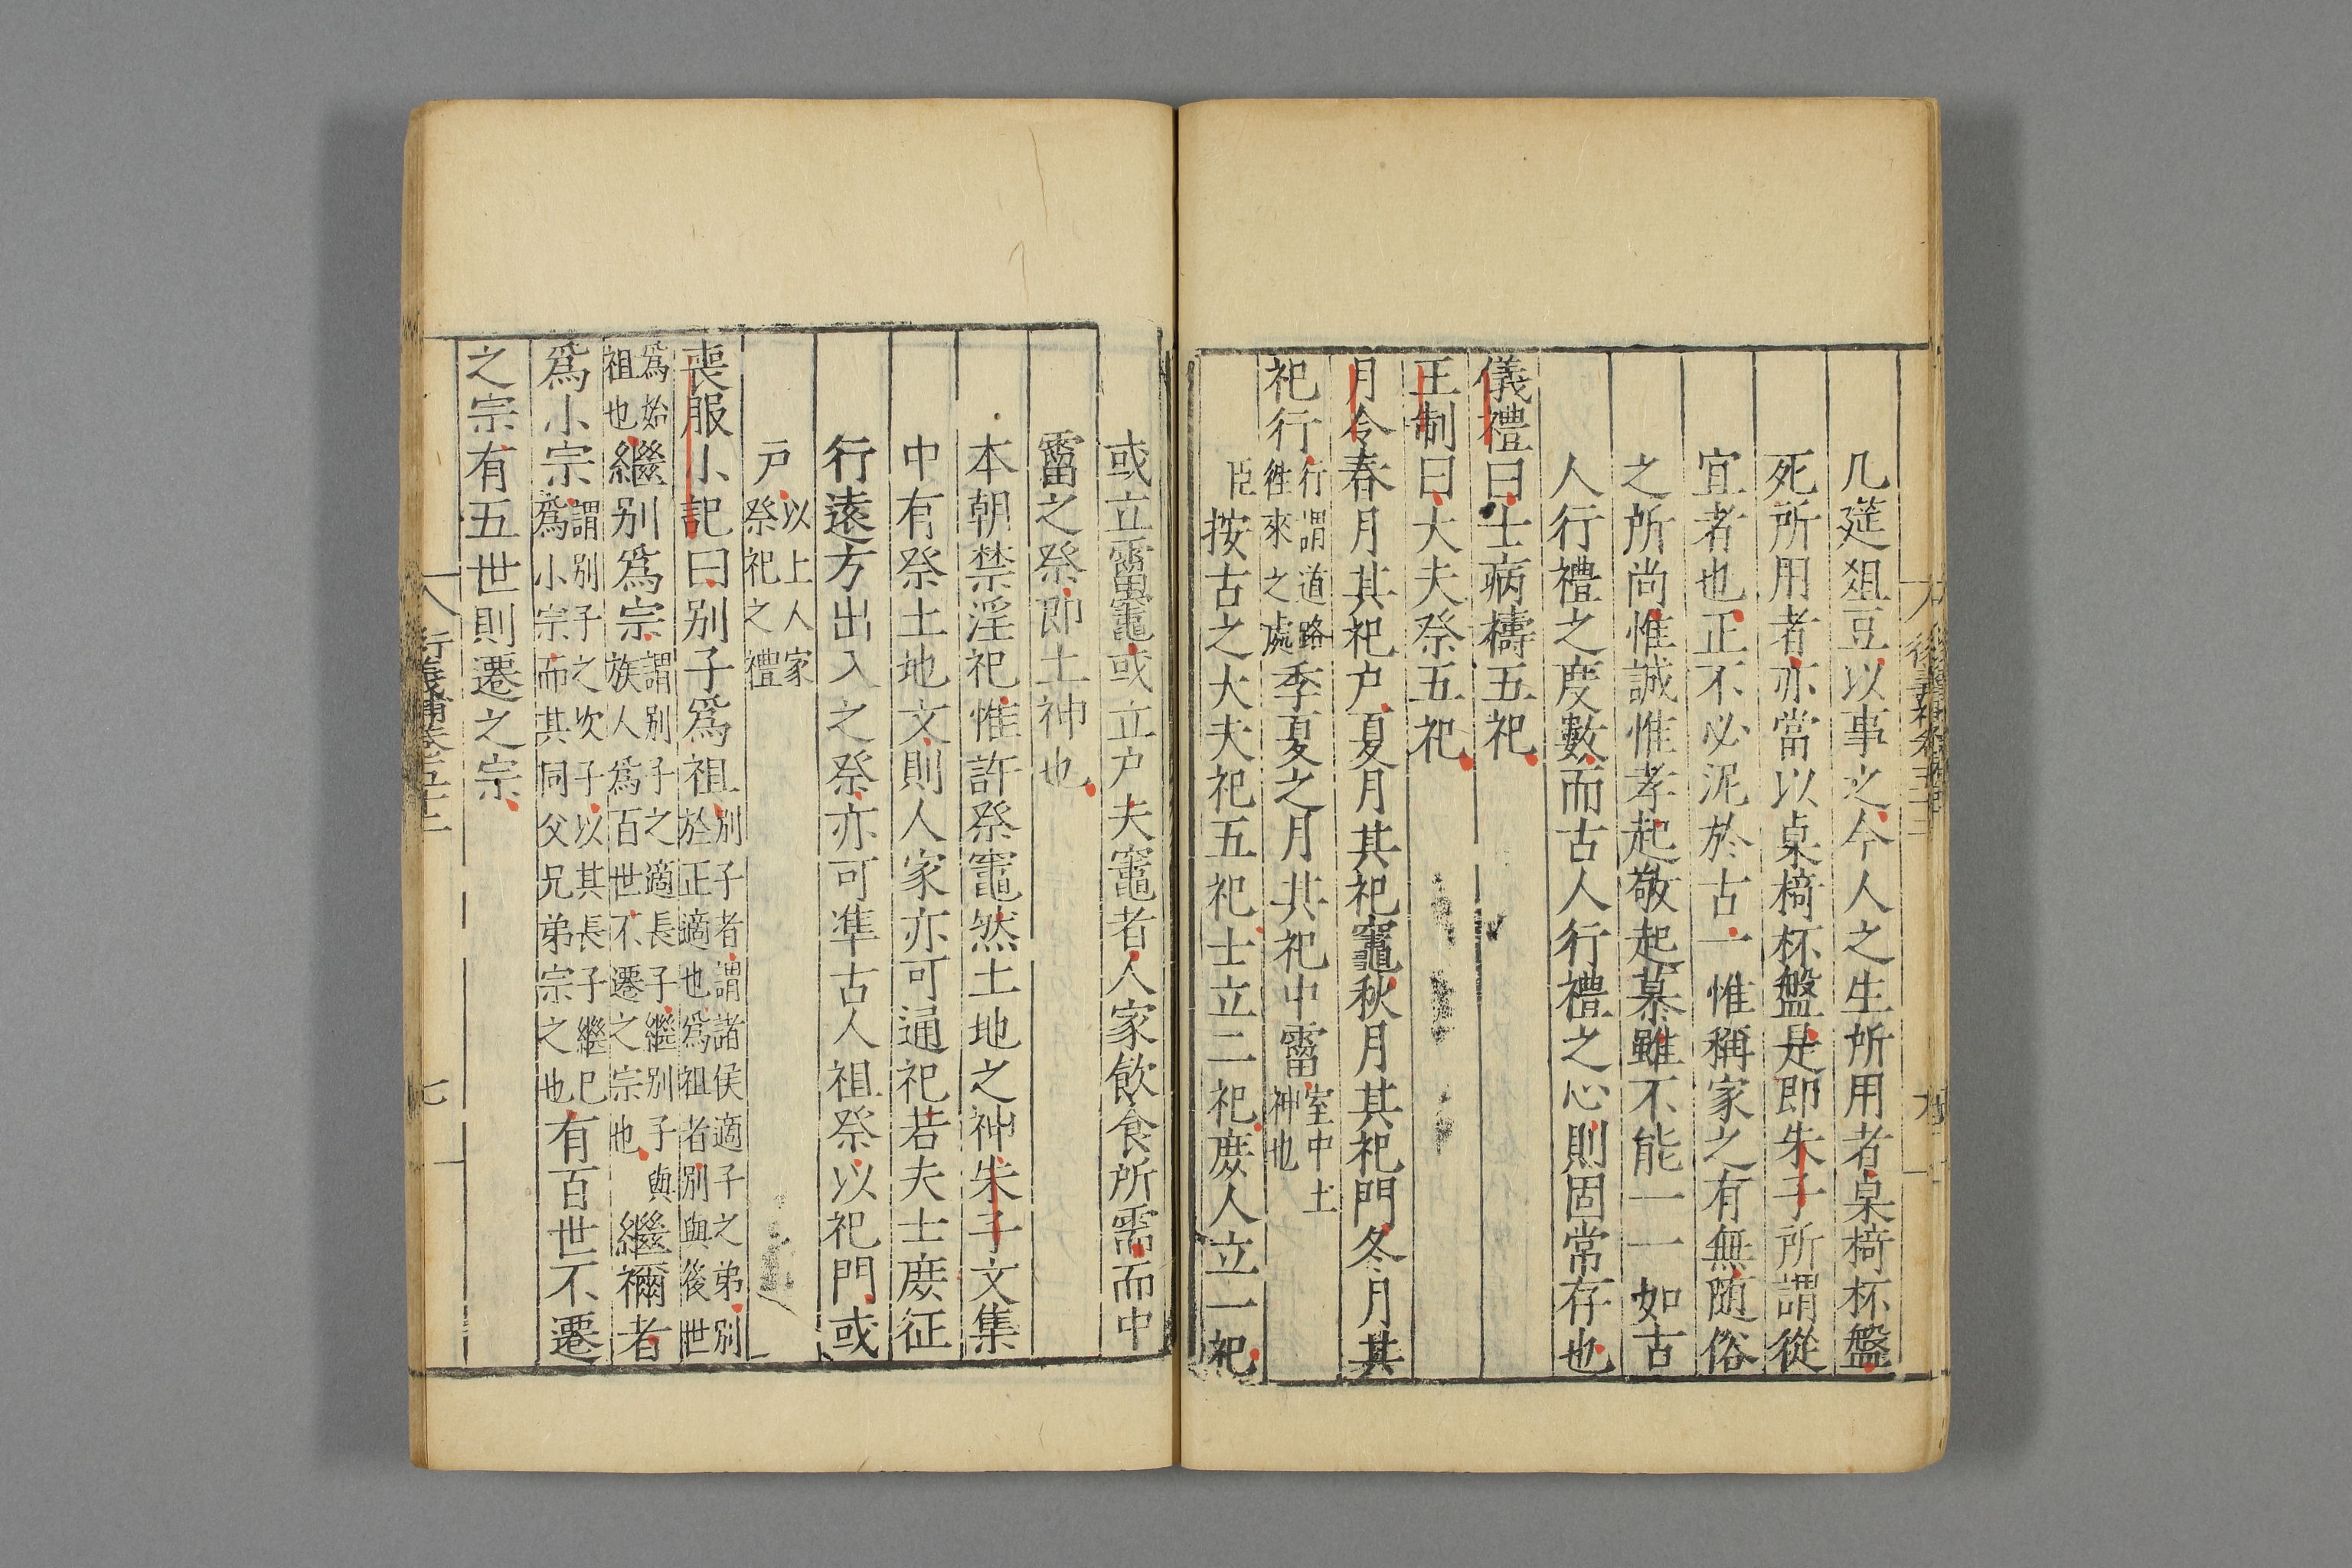 几筵俎豆以事之今人之生所用者桌椅杯盤
死所用者亦當以桌椅杯盤是即朱子所謂從
宜者也正不必泥於古一惟稱家之有無随俗
之所尚惟誠惟孝起敬起慕雖不能一一如古
人行禮之度數而古人行禮之心則固常存也
儀禮曰士病禱五祀
王制曰大夫祭五祀
月令春月其祀户夏月其祀竈秋月其祀門冬月其
祀行行謂道路徃來之處季夏之月其祀中霤室中土神也
臣按古之大夫祀五祀士立二祀庶人立一祀
或立竈或立户夫竈者人家飲食所需而中
霤之祭即土神也
本朝禁淫祀惟許祭竈然土地之神朱子文集
中有祭土地文則人家亦可通祀若夫士庶征
行遠方出入之祭亦可準古人祖祭以祀門或
户以上人家祭祀之禮
喪服小記曰别子爲祖别子者謂諸侯適子之弟别於正適也爲祖者别與後世
爲始祖也繼别爲宗謂别子之適長子繼别子與族人爲百世不遷之宗也繼禰者
爲小宗謂别子之次子以其長子繼已爲小宗而其同父兄弟宗之也有百世不遷
之宗有五世則遷之宗
七